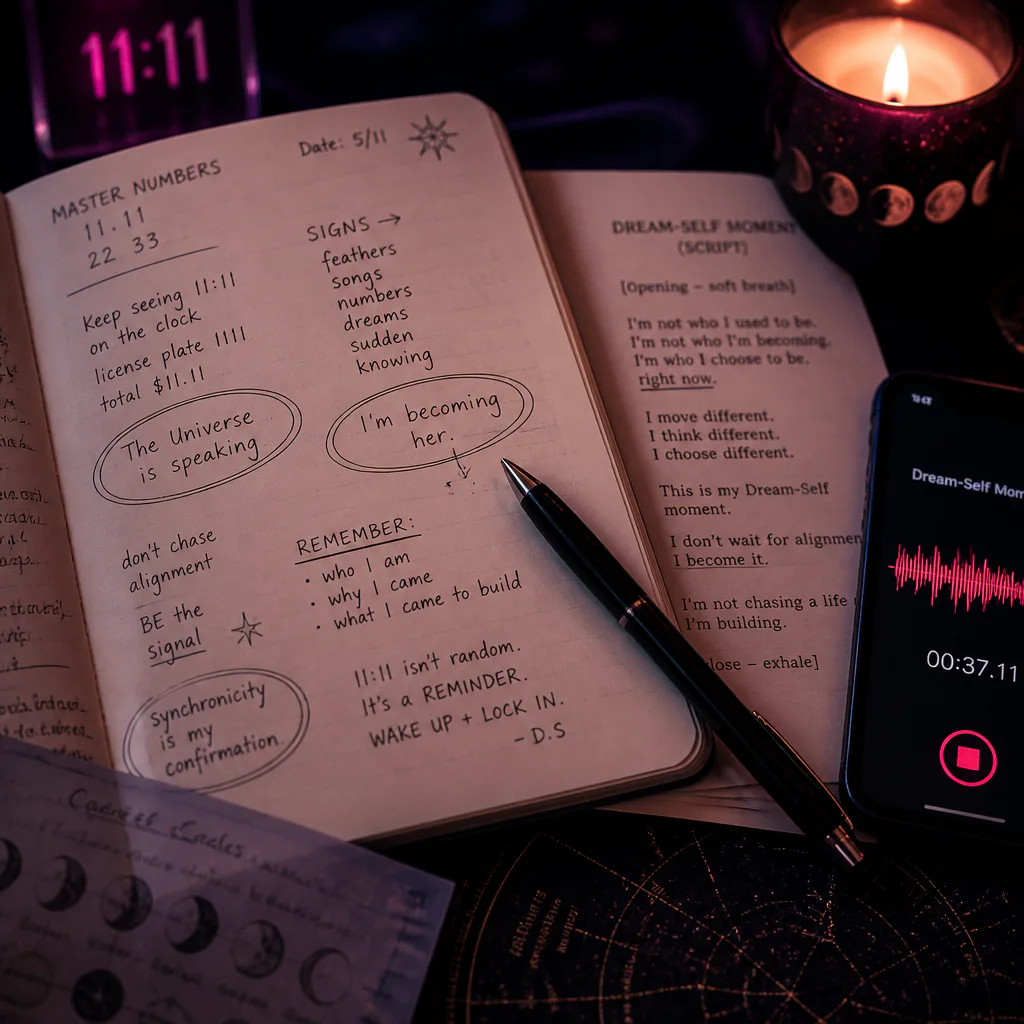 11:11
MASTER NUMBERS
11.11
22 33
Date: 5/11
Keep seeing 11:11
on the clock
license plate 1111
total $11.11
SIGNS →
feathers
songs
numbers
dreams
sudden
knowing
The Universe
is speaking
I'm becoming
her.
don't chase
alignment
BE the
signal
REMEMBER:
• who I am
• why I came
• what I came to build
synchronicity
is my
confirmation.
11:11 isn't random.
It's a REMINDER.
WAKE UP + LOCK IN.
- D.S
DREAM-SELF MOMENT
(SCRIPT)
[Opening – soft breath]
I'm not who I used to be.
I'm not who I'm becoming.
I'm who I choose to be.
right now.
I move different.
I think different.
I choose different.
This is my Dream-Self
moment.
I don't wait for alignmen
I become it.
I'm not chasing a life
I'm building.
lose – exhale]
Dream-Self Mom
00:37.11